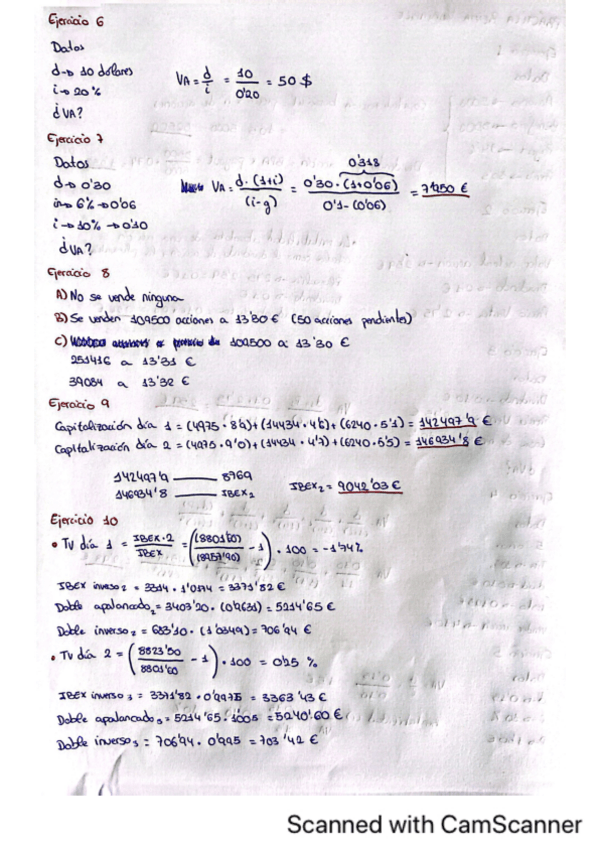 Ejercicio 6
Datos
d→ 10 dolares
i→ 20%
VA = d/i = 10/0'20 = 50 $
¿VA?
Ejercicio 7
Datos
d→ 0'30
i→ 6% →0'06
i→ 10% →0'10
¿VA?
VA = d·(1+i)/(i-g) = 0'30·(1+0'06)/0'1-(0'06) = 7'950 €
0'318
Ejercicio 8
A) No se vende ninguna
B) Se venden 109500 acciones a 13'30 € (50 acciones pendientes)
C) 109500 a 13'30 €
251416 a 13'31 €
39084 a 13'32 €
Ejercicio 9
Capitalización día 1 = (4975·8'9)+(14434·4'6)+(6240·5'1) = 142497'9 €
Capitalización día 2 = (4975·9'0)+(14434·4'7)+(6240·5'5) = 146934'8 €
142497'9 —— 8769
146934'8 —— IBEX₂
IBEX₂ = 9042'03 €
Ejercicio 10
• TV día 1 = IBEX·2/IBEX = ((8801'60)/(8957'90) - 1)·100 = -1'74%
IBEX inverso₂ = 3314·1'0174 = 3371'82 €
Doble apalancado₂ = 5214'65 €
Doble inverso₂ = 683'10·(1'0349) = 706'94 €
• TV día 2 = (8823'50/8801'60 - 1)·100 = 0'25 %
IBEX inverso₃ = 3371'82·0'9975 = 3363'43 €
Doble apalancado₃ = 5214'65·1'005 = 5240'60 €
Doble inverso₃ = 706'94·0'995 = 703'42 €
Scanned with CamScanner